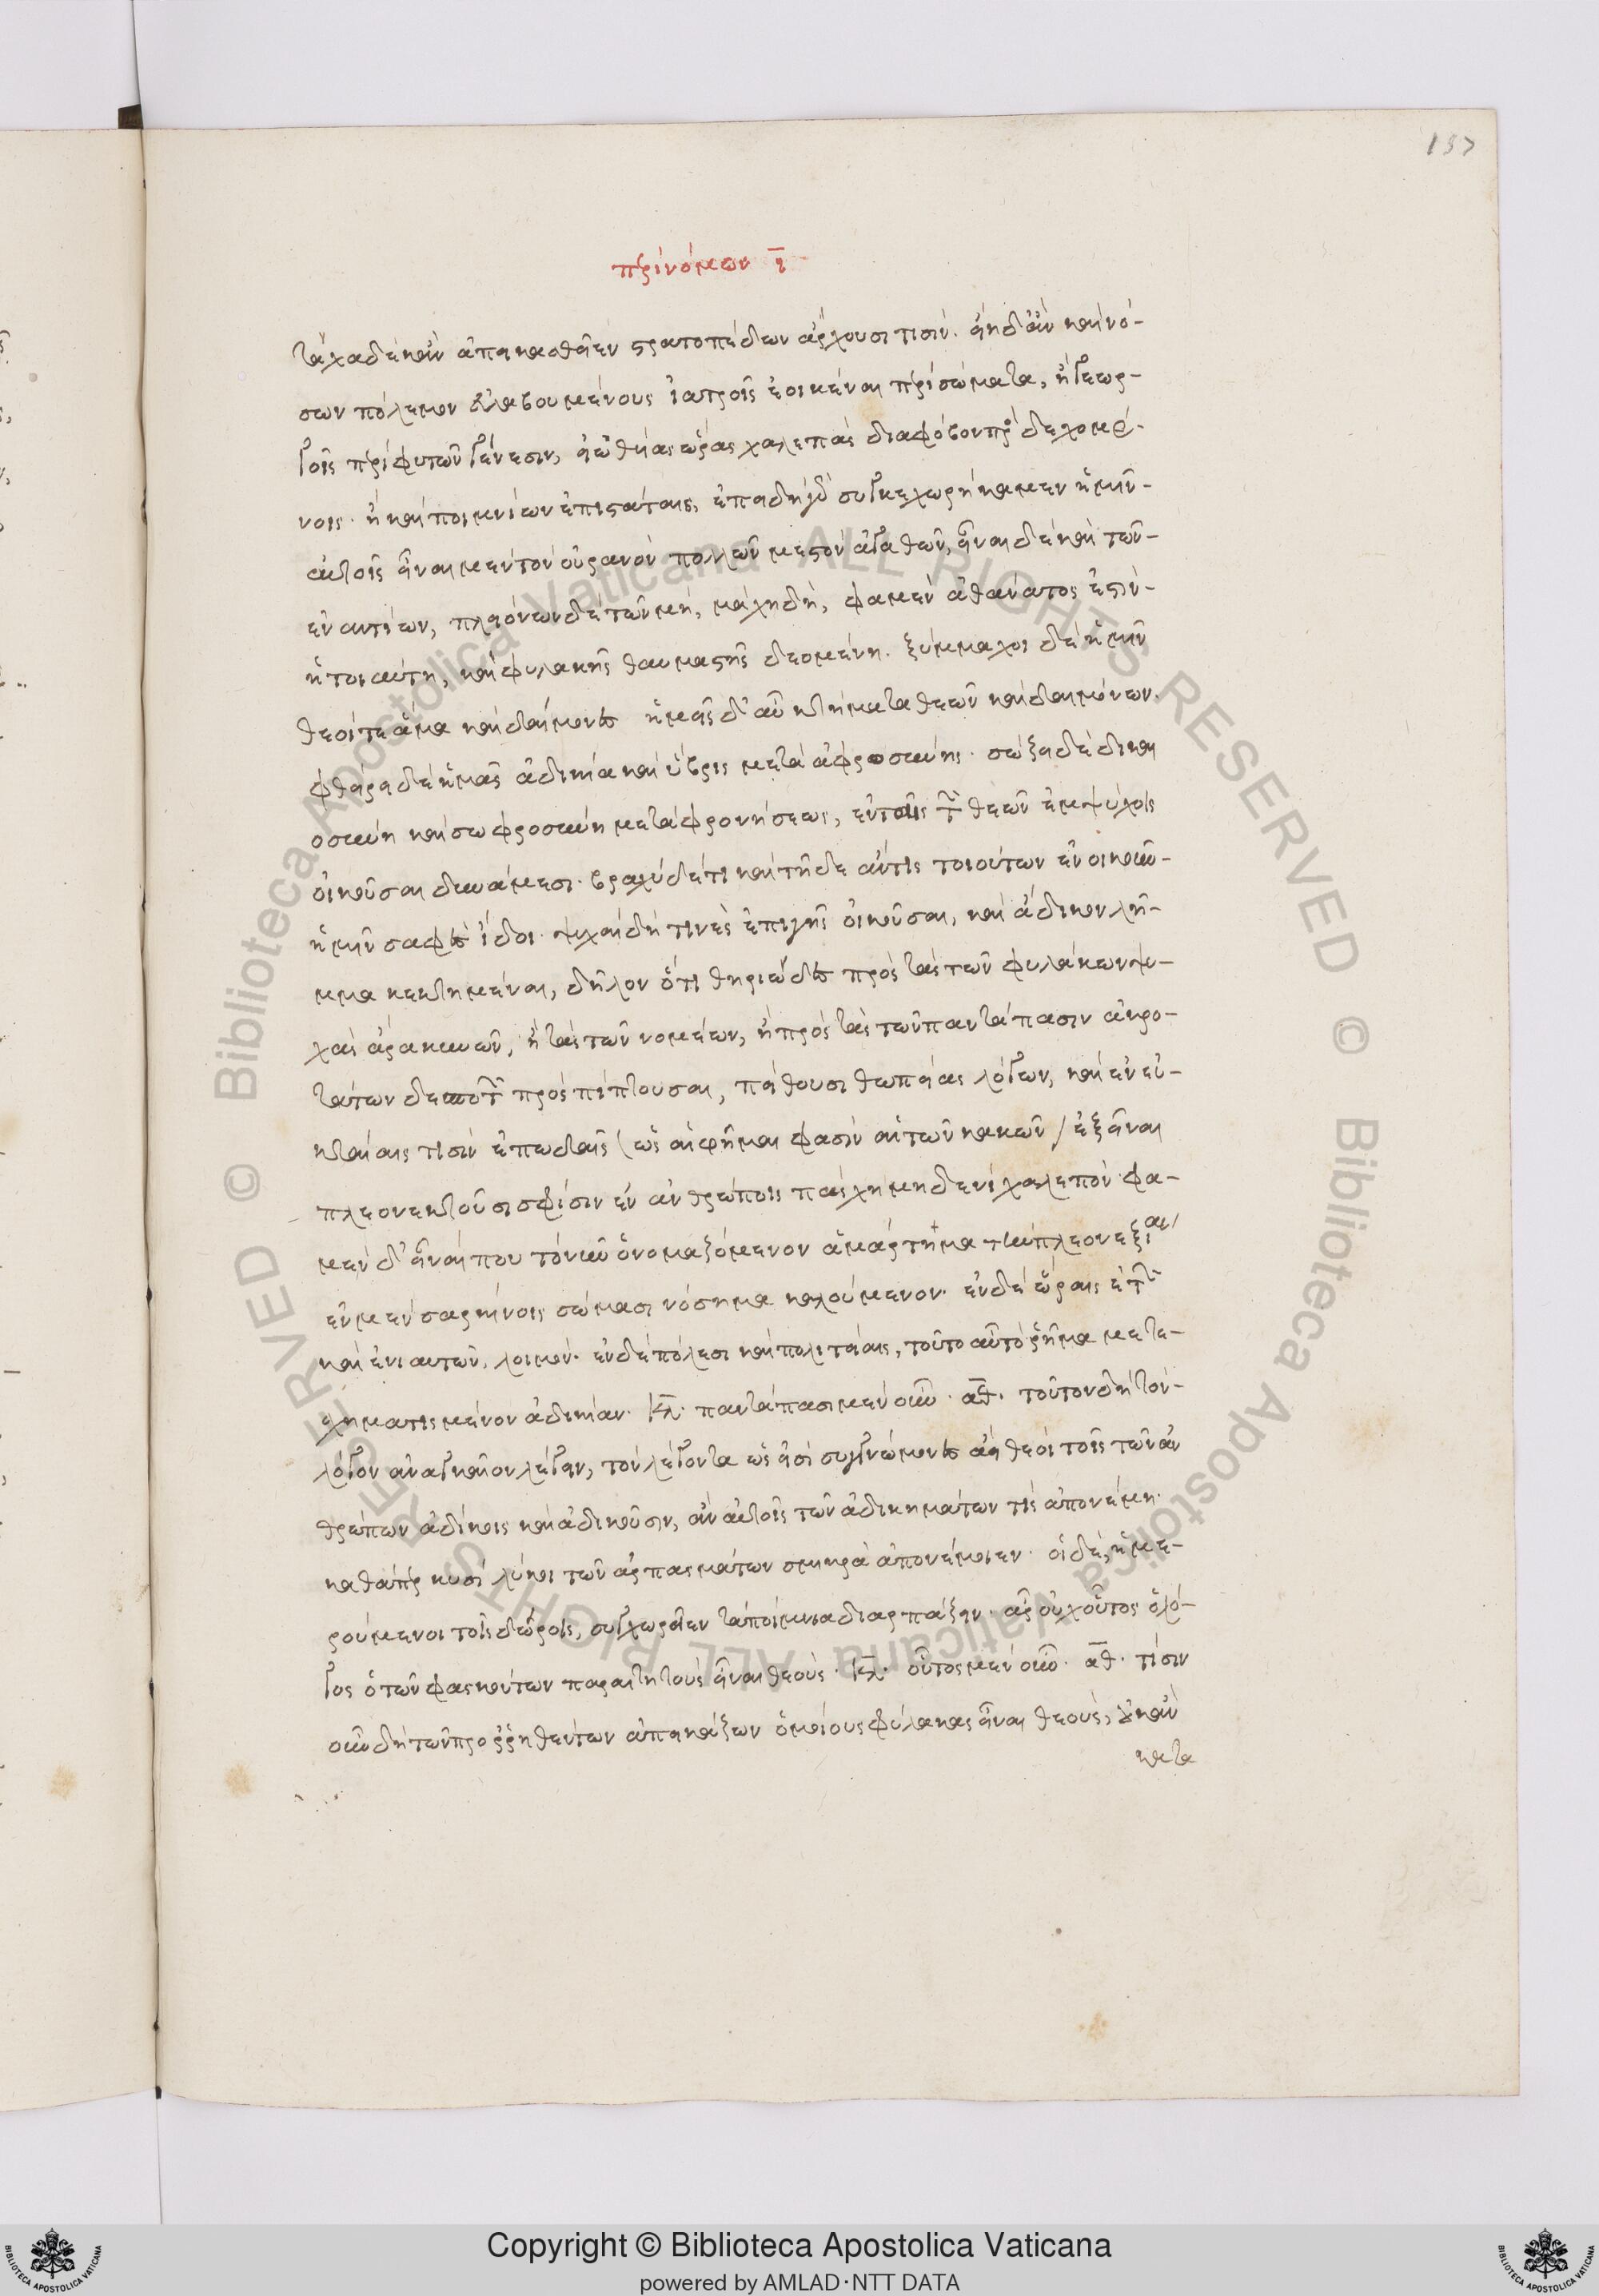 157
περὶ νόμων ι
τάχα δὲ κἂν ἀπεικασθεῖεν στρατοπέδων ἄρχουσί τισιν. εἴη δ' ἂν καὶ νό-
σων πόλεμον εὐλαβουμένους ἰατροῖς ἐοικέναι περὶ σώματα, ἢ γεωρ-
γοῖς περὶ φυτῶν γένεσιν, εἰωθυίας ὥρας χαλεπὰς διὰ φόβων προσδεχομέ-
νοις. ἢ καὶ ποιμνίων ἐπιστάταις, ἐπειδὴ γὰρ συγκεχωρήκαμεν ἡμῖν-
αὐτοῖς εἶναι μὲν τὸν οὐρανὸν πολλῶν μεστὸν ἀγαθῶν, εἶναι δὲ καὶ τῶν-
ἐναντίων, πλειόνων δὲ τῶν μή, μάχη δή, φαμὲν ἀθάνατος ἐστὶν-
ἡ τοιαύτη, καὶ φυλακῆς θαυμαστῆς δεομένη. ξύμμαχοι δὲ ἡμῖν
θεοί τε ἅμα καὶ δαίμονες ἡμεῖς δ' αὖ κτήματα θεῶν καὶ δαιμόνων.
φθείρει δὲ ἡμᾶς ἀδικία καὶ ὕβρις μετὰ ἀφροσύνης. σώζει δὲ δικαι
οσύνη καὶ σωφροσύνη μετὰ φρονήσεως, ἐν ταῖς τῶν θεῶν ἐμψύχοις
οἰκοῦσαι δυνάμεσι. βραχὺ δέ τι καὶ τῇδε ἄν τις τοιούτων ἐνοικοῦν-
ἡμῖν σαφὲς ἴδοι. ψυχαὶ δή τινες ἐπὶ γῆς οἰκοῦσαι, καὶ ἄδικον λῆ-
μμα κεκτημέναι, δῆλον ὅτι θηριώδεις πρὸς τὰς τῶν φυλάκων ψυ-
χὰς ἄρα κυνῶν, ἢ τὰς τῶν νομέων, ἢ πρὸς τὰς τῶν παντάπασιν ἀκρο-
τάτων δεσποτῶν προσπίπτουσαι, πείθουσι θωπείαις λόγων, καὶ ἐν εὐ-
κταίαις τισὶν ἐπῳδαῖς (ὡς αἱ φῆμαι φασὶν αἱ τῶν κακῶν / ἐξεῖναι
πλεονεκτοῦσι σφίσιν ἐν ἀνθρώποις πάσχειν μηδὲν χαλεπόν φα-
μὲν δ' εἶναί που τὸ νῦν ὀνομαζόμενον ἁμάρτημα τὴν πλεονεξίαν
ἐν μὲν σαρκίνοις σώμασι νόσημα καλούμενον. ἐν δὲ ὥραις ἐτῶν
καὶ ἐνιαυτῶν, λοιμόν. ἐν δὲ πόλεσι καὶ πολιτείαις, τοῦτο αὐτὸ ῥῆμα μετε-
σχηματισμένον ἀδικίαν. κλ. παντάπασι μὲν οὖν. αθ. τοῦτον δὴ τὸν-
λόγον ἀναγκαῖον λέγειν, τὸν λέγοντα ὡς εἰσὶ συγγνώμονες ἀεὶ θεοὶ τοῖς τῶν ἀν
θρώπων ἀδίκοις καὶ ἀδικοῦσιν, ἂν αὐτοῖς τῶν ἀδικημάτων τις ἀπονέμῃ.
καθάπερ κυσὶ λύκοι τῶν ἁρπασμάτων σμικρὰ ἀπονέμοιεν. οἱ δὲ, ἡμε-
ρούμενοι τοῖς δώροις, συγχωροῖεν τὰ ποίμνια διαρπάζειν. ἆρ' οὐχ οὗτος ὁ λό-
γος ὁ τῶν φασκόντων παραιτητοὺς εἶναι θεούς. κλ. οὗτος μὲν οὖν. αθ. τίσιν
οὖν δὴ τῶν προρρηθέντων ἀπεικάζων ὁμοίους φύλακας εἶναι θεούς,
κατα